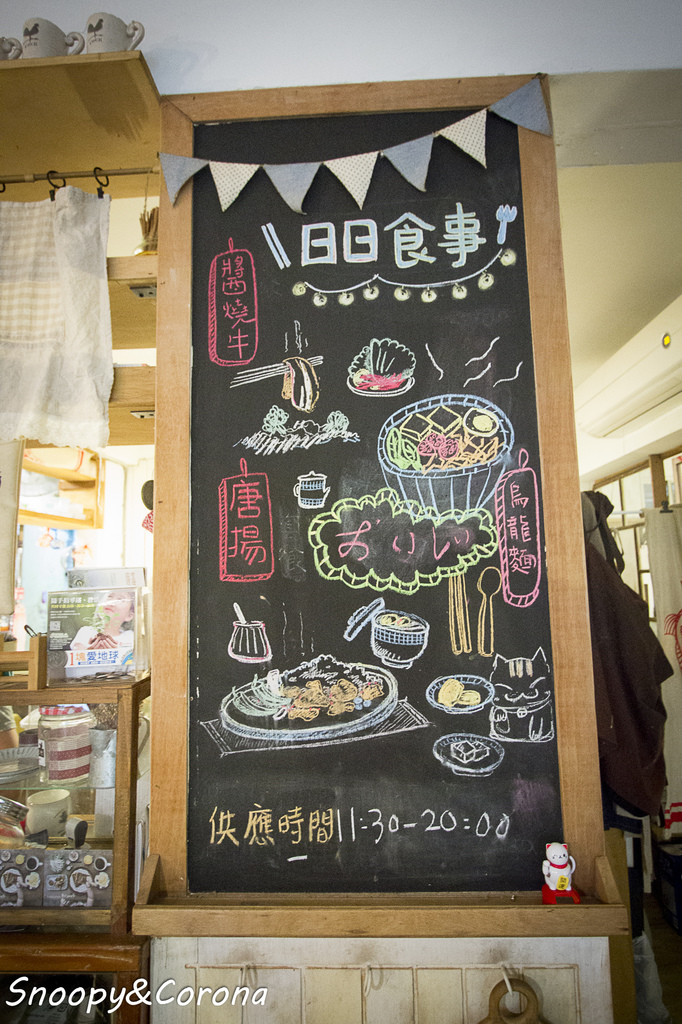 日日食事
醬燒牛
唐揚
烏龍麵
おいしい
供應時間11:30-20:00
1塊愛地球
Snoopy&Corona